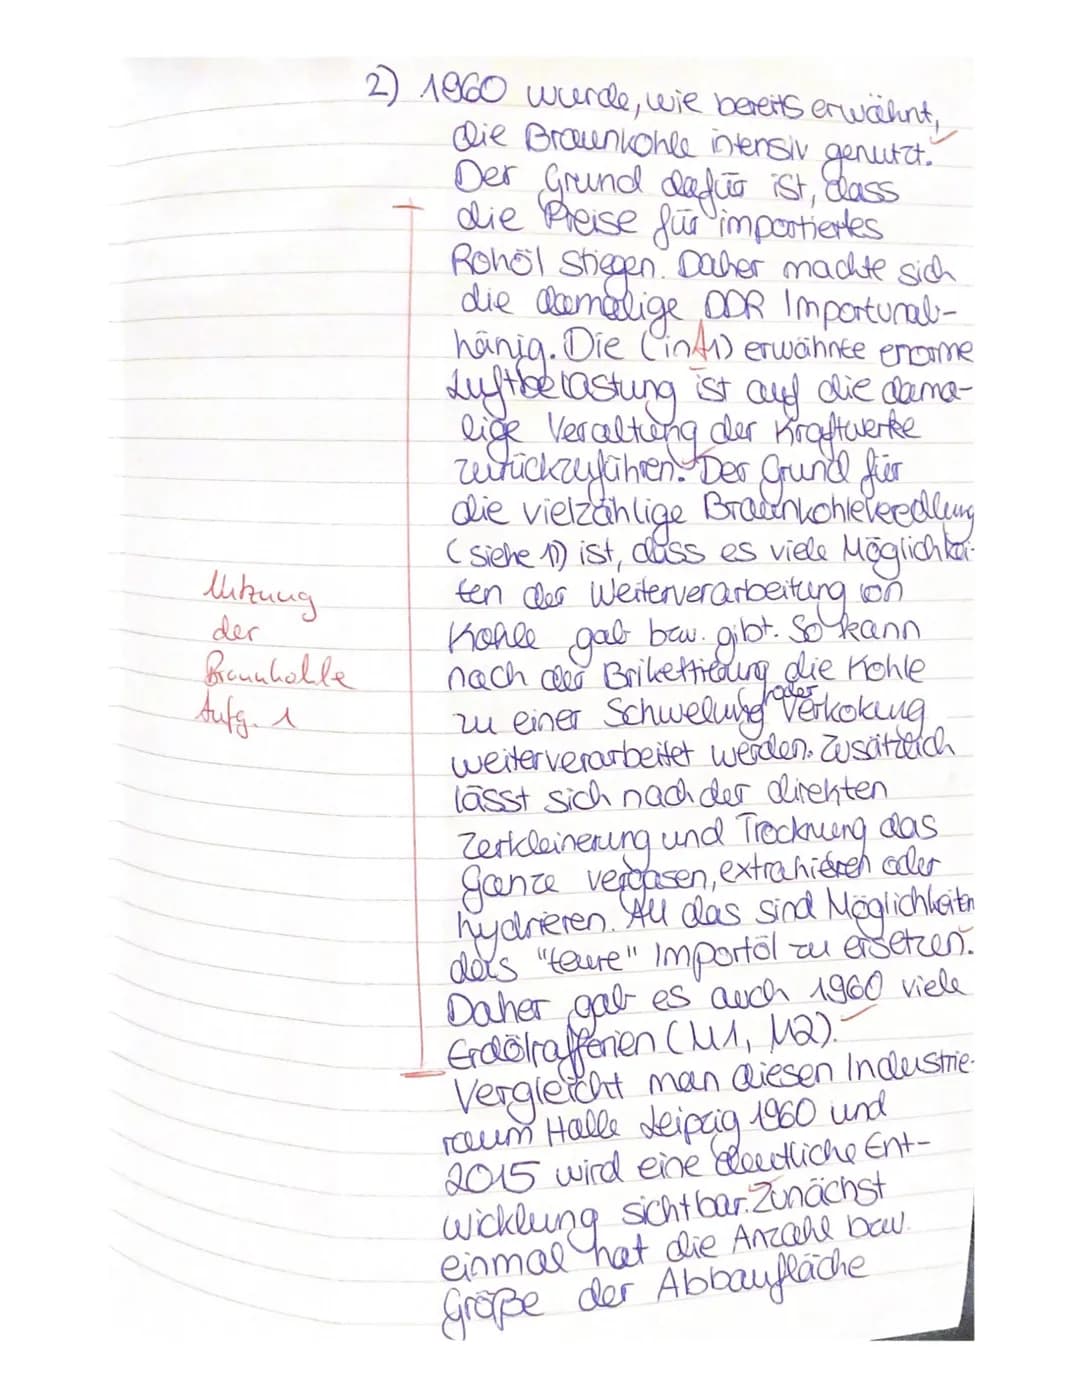 2) 1960 wurde, wie bereits erwähnt,
die Braunkohle intensiv genutzt.
Der Grund dafür ist, dass
die Preise für importiertes
Rohöl stiegen. Daher machte sich
die damalige DDR Importunab-
hänig. Die (in A1) erwähnte enorme
Luftbelastung ist auf die dama-
lige Veraltung der Kraftwerke
zurückzuführen. Der Grund für
die vielzählige Braunkohleveredlung
(siehe 1)) ist, dass es viele Möglichkei-
ten der Weiterverarbeitung von
Kohle gab bzw. gibt. So kann
nach der Brikettierung die Kohle
zu einer Schwelung oder Verkokung
weiterverarbeitet werden. Zusätzlich
lässt sich nach der direkten
Zerkleinerung und Trocknung das
ganze vergasen, extrahieren oder
hydrieren. All das sind Möglichkeiten
das "teure" Importöl zu ersetzen.
Daher gab es auch 1960 viele
Erdölraffenien (M1, M2).
Vergleicht man diesen Industrie-
raum Halle Leipzig 1960 und
2015 wird eine deutliche Ent-
wicklung sichtbar. Zunächst
einmal hat die Anzahl bzw.
Größe der Abbaufläche
Nutzung
der
Braunkohle
Aufg. 1